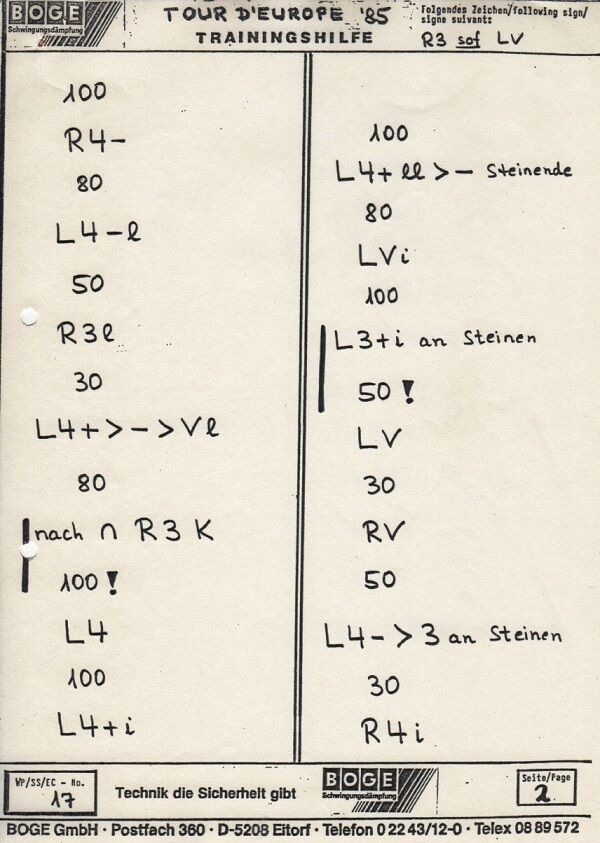 BOGE
Schwingungsdämpfung
TOUR D'EUROPE '85
TRAININGSHILFE
Folgendes Zeichen/following sign/
signe suivant:
R3 sof LV
100
R4-
80
L4-l
50
R3l
30
L4+>->Vl
80
nach ∩ R3 K
100!
L4
100
L4+i
100
L4+ll>- Steinende
80
LVi
100
L3+i an Steinen
50!
LV
30
RV
50
L4->3 an Steinen
30
R4i
WP/SS/EC - No.
17
Technik die Sicherheit gibt
BOGE
Schwingungsdämpfung
Seite/Page
2
BOGE GmbH · Postfach 360 · D-5208 Eitorf · Telefon 0 22 43/12-0 · Telex 08 89 572